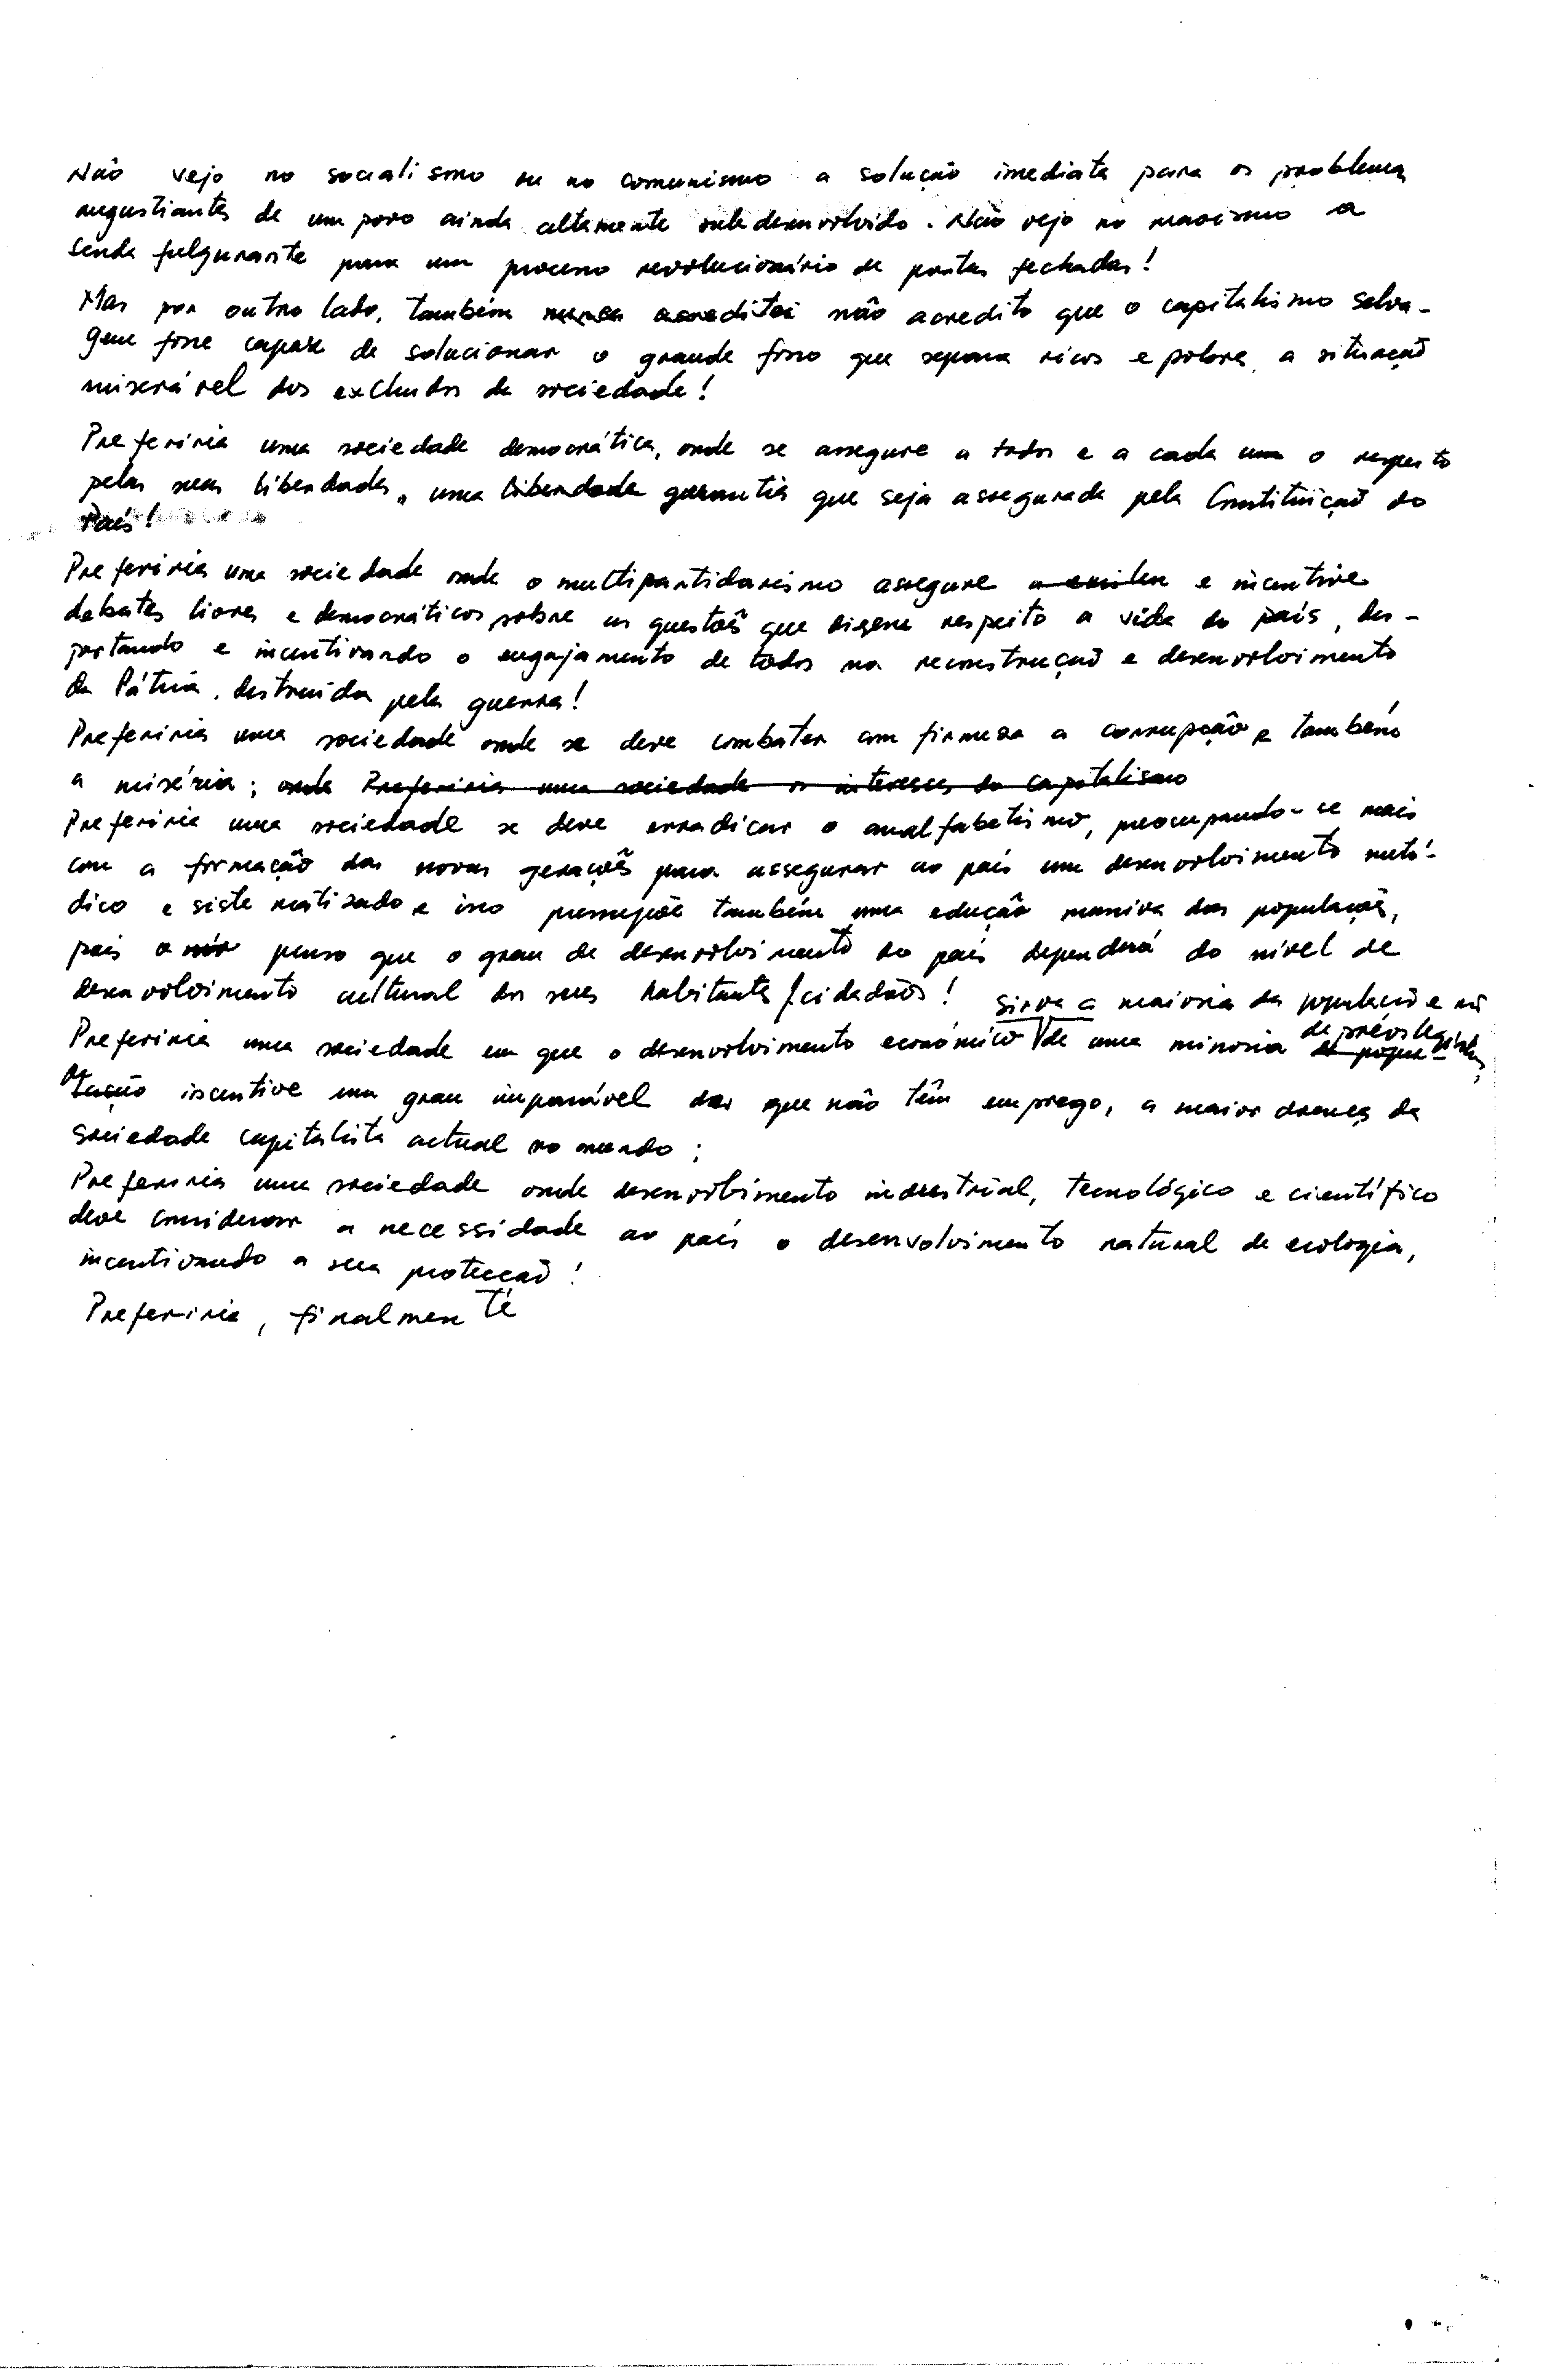 Não vejo no socialismo ou no comunismo a solução imediata para os problemas
angustiantes de um povo ainda altamente subdesenvolvido. Não vejo no maoismo a
senda fulgurante para um processo revolucionário de portas fechadas!
Mas por outro lado, também nunca acreditei não acredito que o capitalismo selva-
gem fosse capaz de solucionar o grande fosso que separa ricos e pobres, a situação
miserável dos excluidos da sociedade!
Preferiria uma sociedade democrática, onde se assegure a todos e a cada um o respeito
pelas suas liberdades, uma liberdade garantia que seja assegurada pela Constituição do
País!
Preferiria uma sociedade onde o multipartidarismo assegure e incentive
debates livres e democráticos sobre as questões que dizem respeito a vida do país, des-
portando e incentivando o engajamento de todos na reconstrução e desenvolvimento
da Pátria, destruida pela guerra!
Preferiria uma sociedade onde se deve combater com firmeza a corrupção e também
a miséria; onde Preferiria uma sociedade os interesses do capitalismo
Preferiria uma sociedade se deve erradicar o analfabetismo, preocupando-se mais
com a formação das novas gerações para assegurar ao país um desenvolvimento metó-
dico e sistematizado e isso pressupõe também uma edução massiva das populações,
pois o penso que o grau de desenvolvimento do país dependerá do nível de
desenvolvimento cultural dos seus habitantes/cidadãos! sirva a maioria da população e não
Preferiria uma sociedade em que o desenvolvimento económico de uma minoria de previlegiados
de popu-
lação incentive um grau imparável dos que não têm emprego, a maior doença da
sociedade capitalista actual no mundo;
Preferiria uma sociedade onde desenvolvimento industrial, tecnológico e científico
deve considerar a necessidade ao país o desenvolvimento natural de ecologia,
incentivando a sua protecção!
Preferiria, finalmente